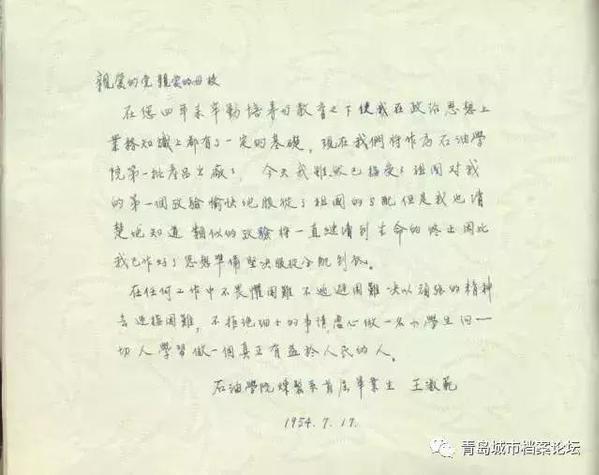 親愛的党親愛的母校
在您四年来辛勤培养和教育之下使我在政治思想上
業務知識上都有了一定的基礎，現在我們将作為石油學
院第一批產品出廠了，今天我雖然已接受了祖国对我
的第一個攷驗愉快地服從了祖国的分配但是我也清
楚地知道類似的攷驗将一直継續到生命的終止因此
我已作好了思想準俻堅决服從分配到底。
在任何工作中不畏懼困難不逃避困難决以頑强的精神
去迎接困難，不拒绝细小的事情虚心做一名小學生向一
切人學習做一個真正有益於人民的人。
石油學院煉製系首屆畢業生 王淑範
1954.7.17.
青岛城市档案论坛